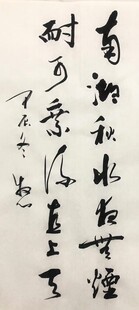 南湖秋水夜無煙
耐可乘流直上天
甲辰冬